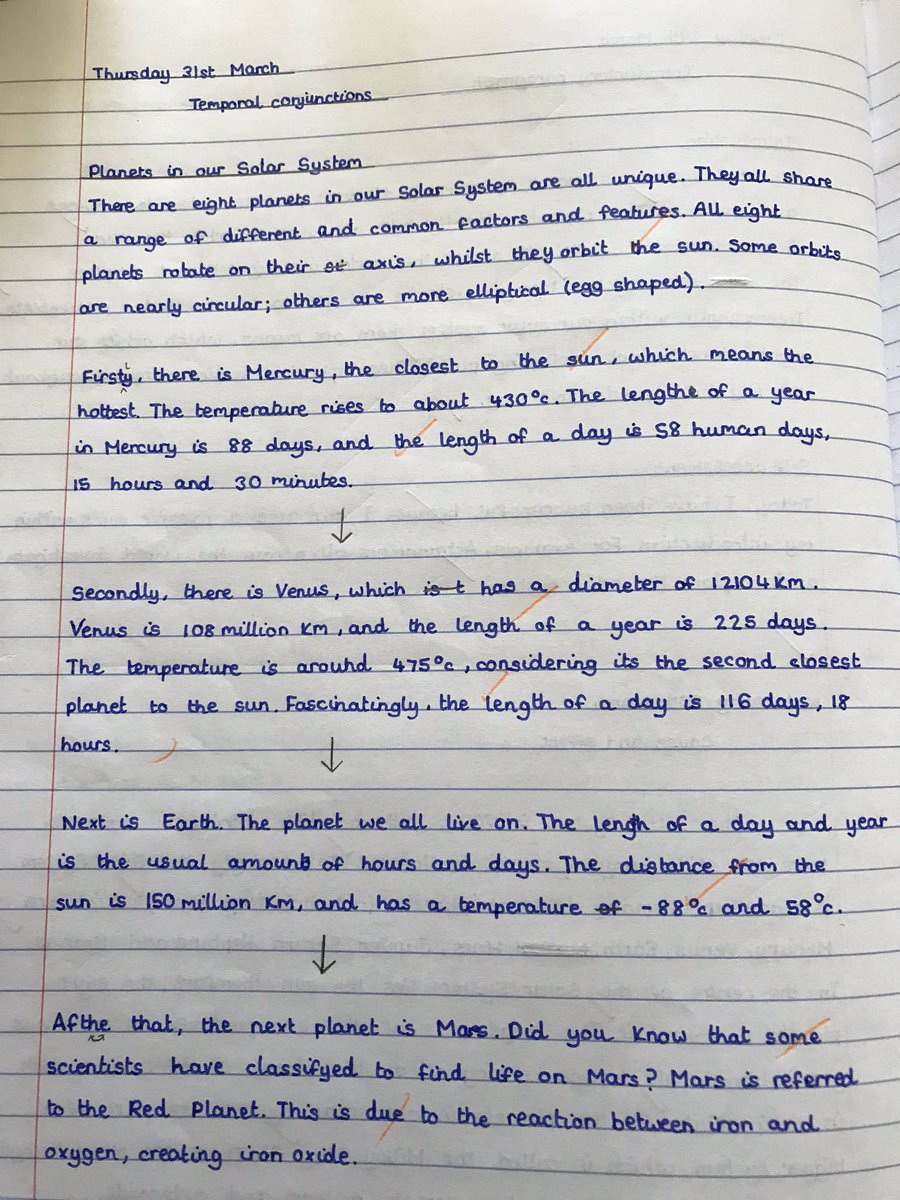 Thursday 31st March
Temporal conjunctions
Planets in our Solar System
There are eight planets in our Solar System are all unique. They all share
a range of different and common factors and features. All eight
planets rotate on their st axis, whilst they orbit the sun. Some orbits
are nearly circular; others are more elliptical (egg shaped).
Firstly, there is Mercury, the closest to the sun, which means the
hottest. The temperature rises to about 430°c. The lengthe of a year
in Mercury is 88 days, and the length of a day is 58 human days,
15 hours and 30 minutes.
Secondly, there is Venus, which is t has a diameter of 12104 Km.
Venus is 108 million Km, and the length of a year is 225 days.
The temperature is around 475°c, considering its the second closest
planet to the sun. Fascinatingly, the length of a day is 116 days, 18
hours.
Next is Earth. The planet we all live on. The lengh of a day and year
is the usual amounts of hours and days. The distance from the
sun is 150 million Km, and has a temperature of -88°c and 58°c.
Afthe that, the next planet is Mars. Did you Know that some
scientists have classifyed to find life on Mars? Mars is referred
to the Red Planet. This is due to the reaction between iron and
oxygen, creating iron oxide.